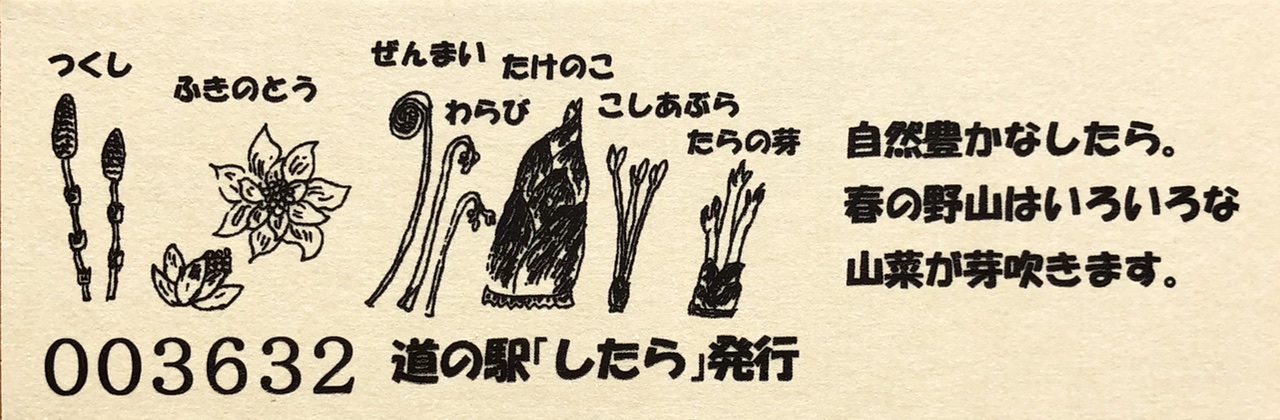 つくし
ふきのとう
ぜんまい
わらび
たけのこ
こしあぶら
たらの芽
自然豊かなしたら。
春の野山はいろいろな
山菜が芽吹きます。
003632 道の駅「したら」発行